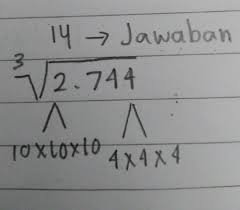 14 → Jawaban
³√2.744
10x10x10 4x4x4